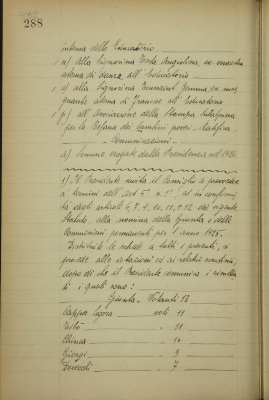 288
interna dello Educatorio.
n) alla Signorina Testa Angiolina ex maestra
interna di danza all'Educatorio
o) alla Signorina Gemma ex inse
gnante interna di francese all'Educatorio
p) all'Associazione della Stampa Subalpina
per la Befana dei bambini poveri.
Comunicazioni
a) Somme erogate dalla Presidenza nel 1924
1) Il Presidente invita il Consiglio a procedere
a termini dell'art 5° ed in conformi
tà degli articoli 6, 7, 9, 10, 11, e 12 del vigente
Statuto, alla nomina della Giunta e delle
Commissioni permanenti per l'anno 1925.
Distribuite le schede a tutti i presenti, si
procede alle votazioni ed ai relativi scrutinii,
dopo di che il Presidente comunica i risulta
ti i quali sono:
Giunta - Votanti 12
voti 11
" 11
" 10
Giorgi " 9
" 7